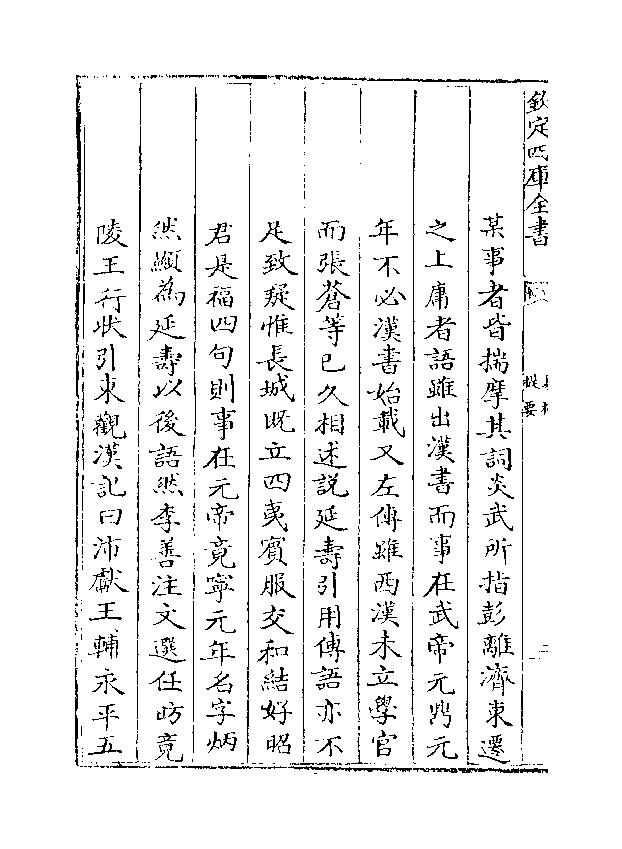 欽定四庫全書
提要
某事者皆揣摩其詞炎武所指彭離濟東遷
之上庸者語雖出漢書而事在武帝元鼎元
年不必漢書始載又左傳雖西漢未立學官
而張蒼等已久相述説延壽引用傳語亦不
足致疑惟長城既立四夷賓服交和結好昭
君是福四句則事在元帝竟寧元年名字炳
然顯為延壽以後語然李善注文選任昉竟
陵王行狀引東觀漢記曰沛獻王輔永平五